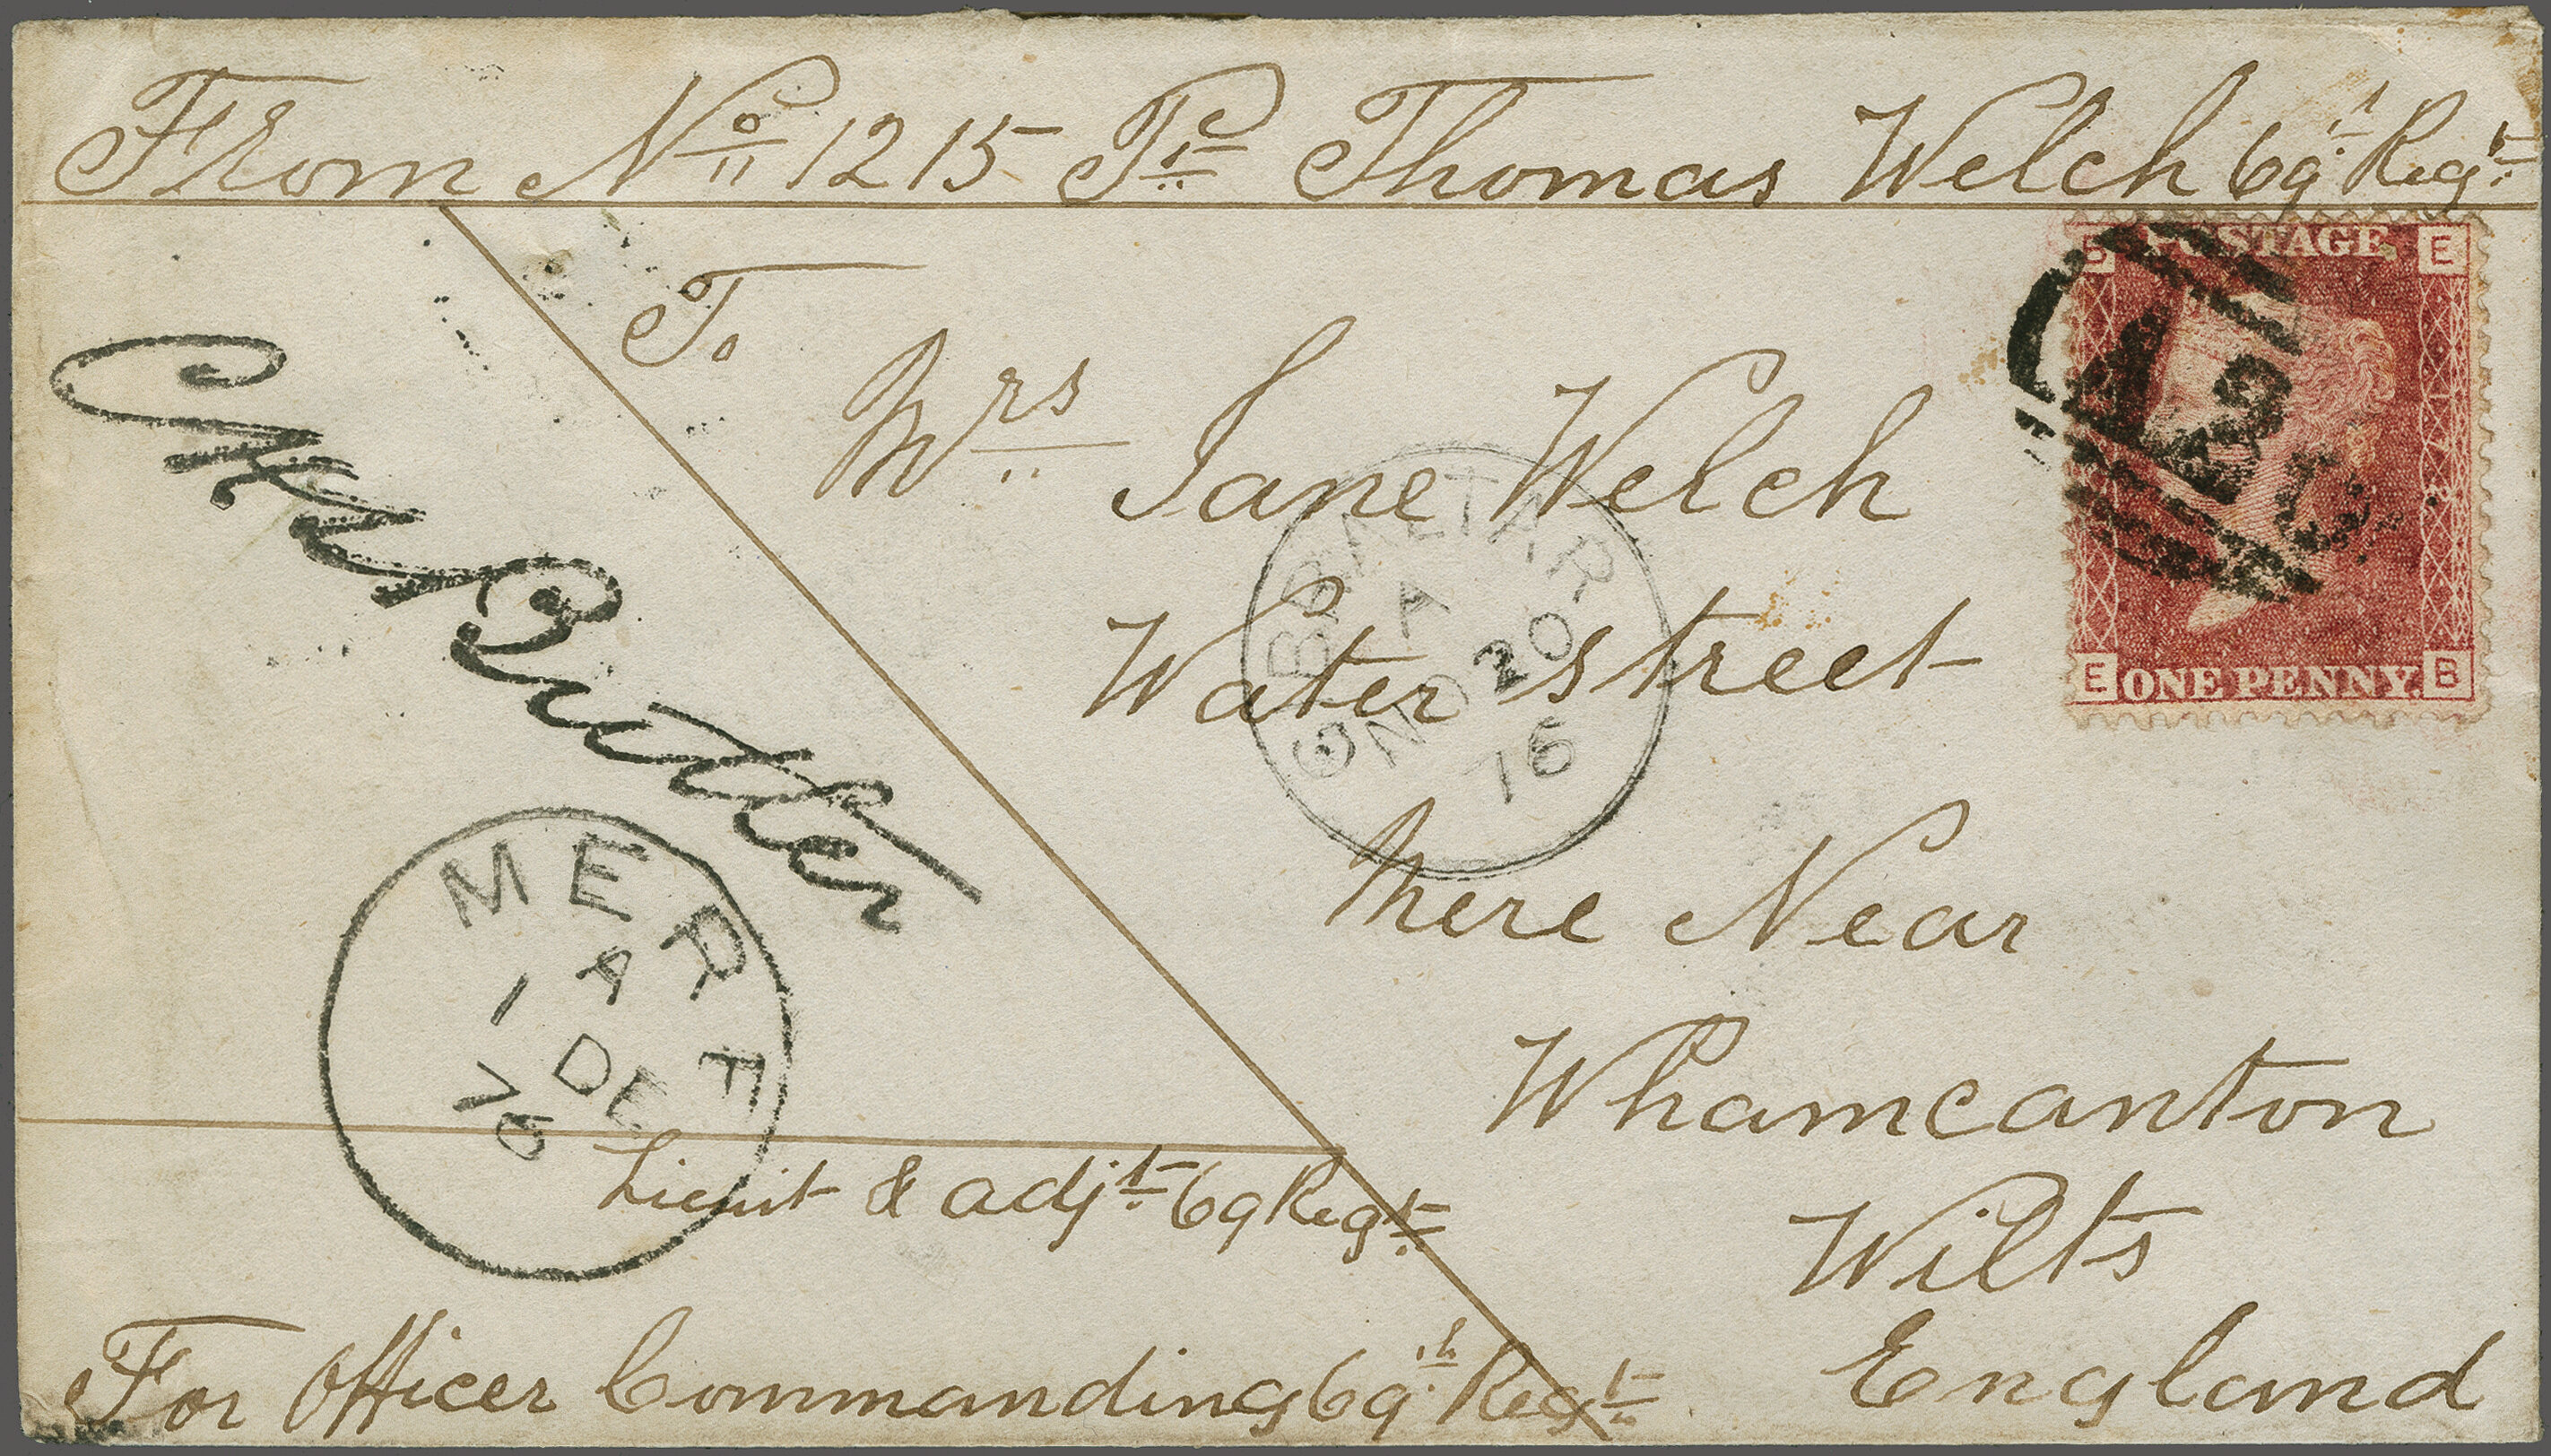 From No 1215 Pte Thomas Welch 69th Regt
To
Mrs Jane Welch
Water street
Mere Near
Whamcanton
Wilts
England
Lieut & adjt 69 Regt
For Officer Commanding 69th Regt
POSTAGE
E
ONE PENNY
E
B
GIBRALTAR
A
NO 20
76
MERE
A
1 DE
76